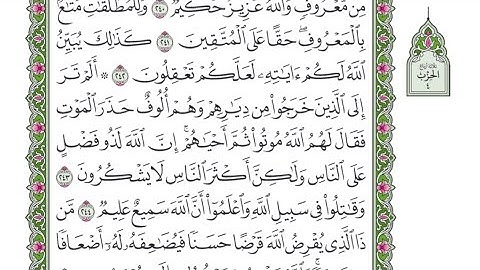 مِن مَّعْرُوفٍ وَٱللَّهُ عَزِيزٌ حَكِيمٌ ٢٤٠ وَلِلْمُطَلَّقَٰتِ مَتَٰعٌۢ
بِٱلْمَعْرُوفِ حَقًّا عَلَى ٱلْمُتَّقِينَ ٢٤١ كَذَٰلِكَ يُبَيِّنُ
ٱللَّهُ لَكُمْ ءَايَٰتِهِۦ لَعَلَّكُمْ تَعْقِلُونَ ٢٤٢ ۞ أَلَمْ تَرَ
إِلَى ٱلَّذِينَ خَرَجُوا۟ مِن دِيَٰرِهِمْ وَهُمْ أُلُوفٌ حَذَرَ ٱلْمَوْتِ
فَقَالَ لَهُمُ ٱللَّهُ مُوتُوا۟ ثُمَّ أَحْيَٰهُمْ إِنَّ ٱللَّهَ لَذُو فَضْلٍ
عَلَى ٱلنَّاسِ وَلَٰكِنَّ أَكْثَرَ ٱلنَّاسِ لَا يَشْكُرُونَ ٢٤٣
وَقَٰتِلُوا۟ فِى سَبِيلِ ٱللَّهِ وَٱعْلَمُوٓا۟ أَنَّ ٱللَّهَ سَمِيعٌ عَلِيمٌ ٢٤٤ مَّن
ذَا ٱلَّذِى يُقْرِضُ ٱللَّهَ قَرْضًا حَسَنًا فَيُضَٰعِفَهُۥ لَهُۥٓ أَضْعَافًا
الحزب
٤